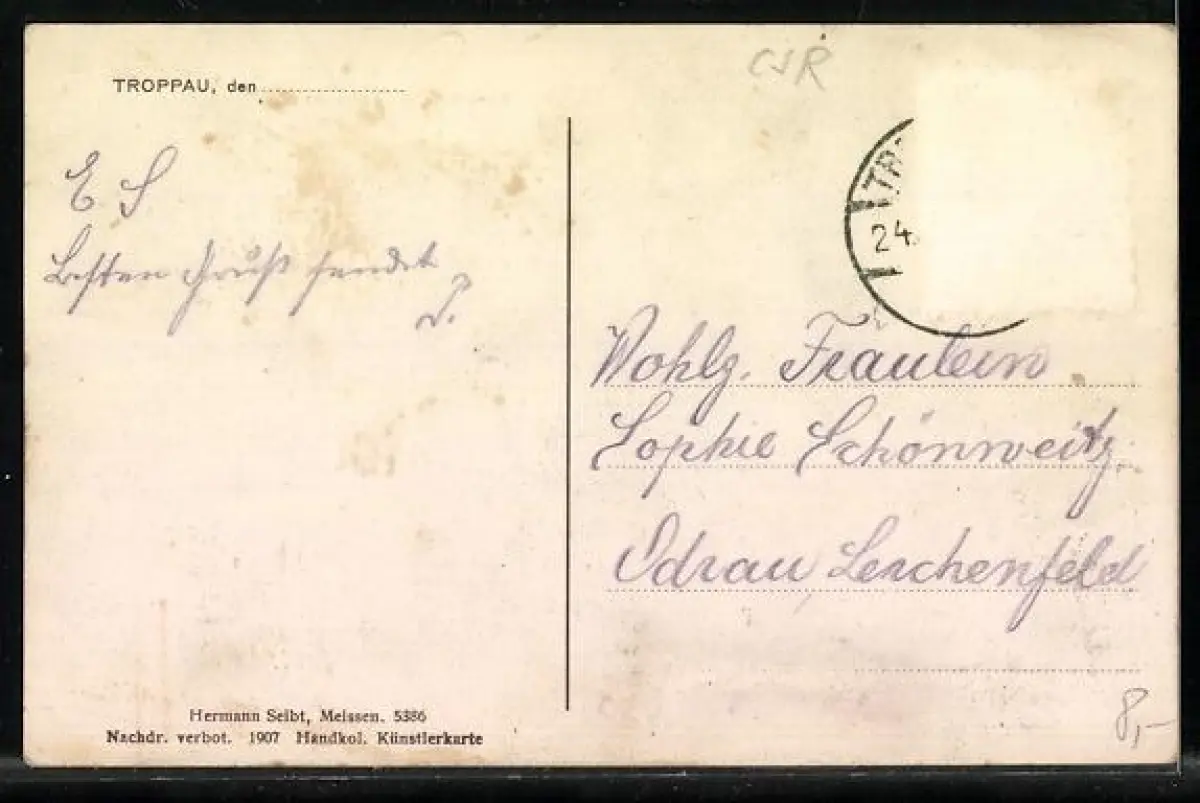 TROPPAU, den
ČSR
TR
24.
E. S
Besten Gruß sendet
P.
Wohlg. Fräulein
Sophie Schönweitz.
Odrau, Lerchenfeld
Hermann Seibt, Meissen. 5386
Nachdr. verbot. 1907 Handkol. Künstlerkarte
8,-